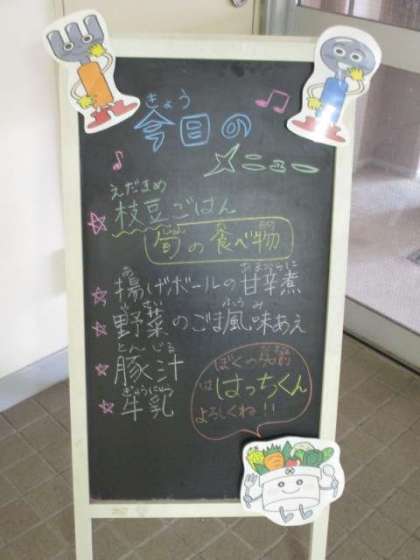 きょう
今日の
メニュー
えだまめ
☆枝豆ごはん
旬の食べ物
あ あまからに
☆揚げボールの甘辛煮
やさい ふうみ
☆野菜のごま風味あえ
とんじる
☆豚汁
ぎゅうにゅう
☆牛乳
ぼくの名前
は はっちくん
よろしくね!!